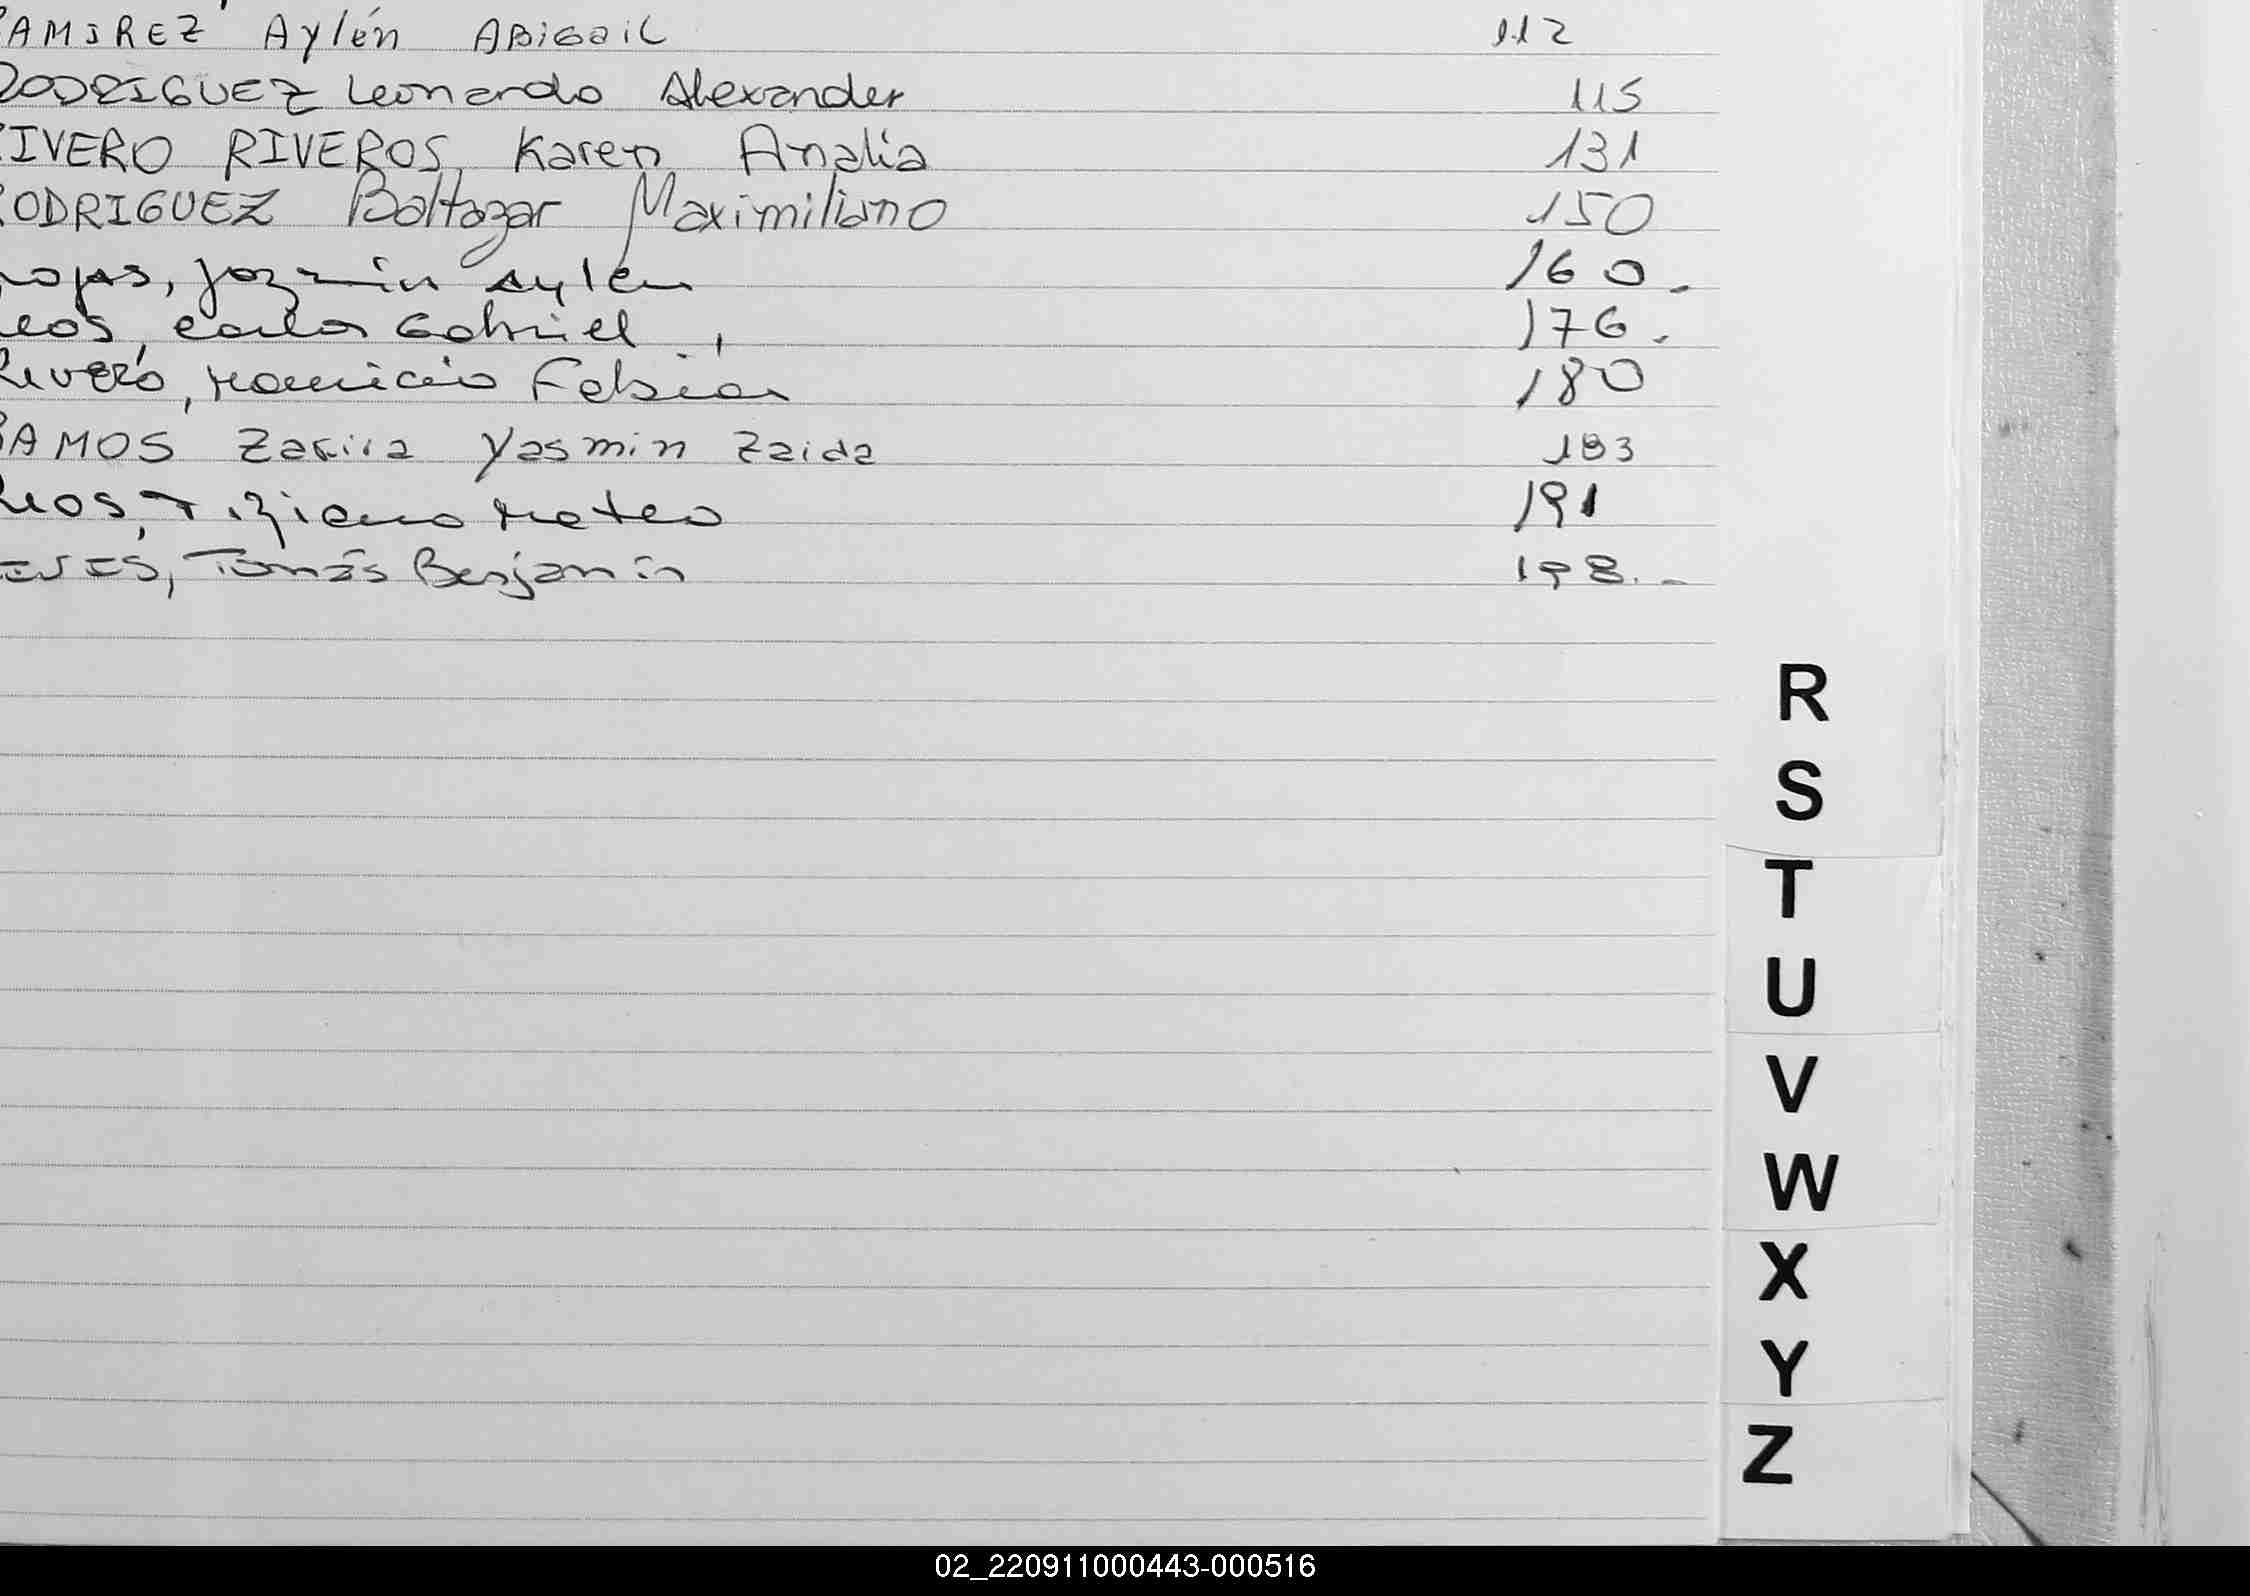 RAMIREZ Aylén ABiGaiL 112
RODRIGUEZ Leonardo Alexander 115
RIVERO RIVEROS, Karen Analia 131
RODRIGUEZ Baltazar Maximiliano 150
Rojas, Jazmín Aylen 160.-
Rios, Carlos Gabriel 176.-
Rivero, Mauricio Fabian 180
RAMOS Yasmin Zaida 183
Rios, Tiziano Mateo 191
Tomás Benjamín 198.-
R
S
T
U
V
W
X
Y
Z
02_220911000443-000516